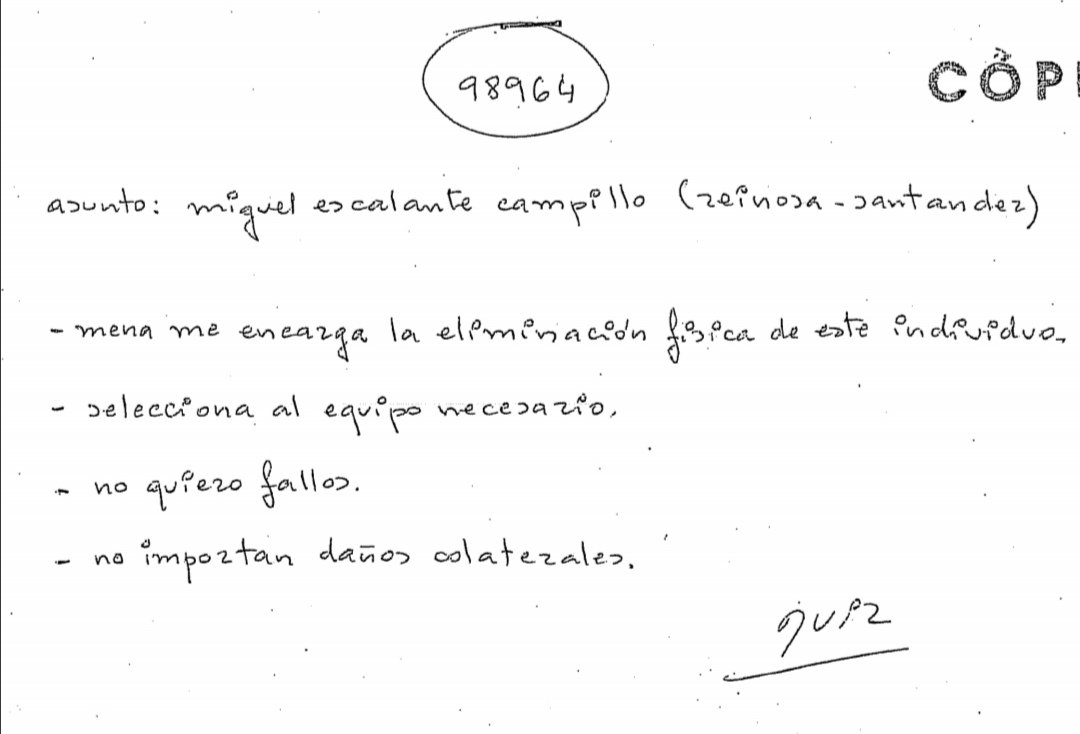 98964
CÓPI
asunto: miguel escalante campillo (reinosa-santander)
- mena me encarga la eliminación física de este individuo.
- selecciona al equipo necesario.
- no quiero fallos.
- no importan daños colaterales.